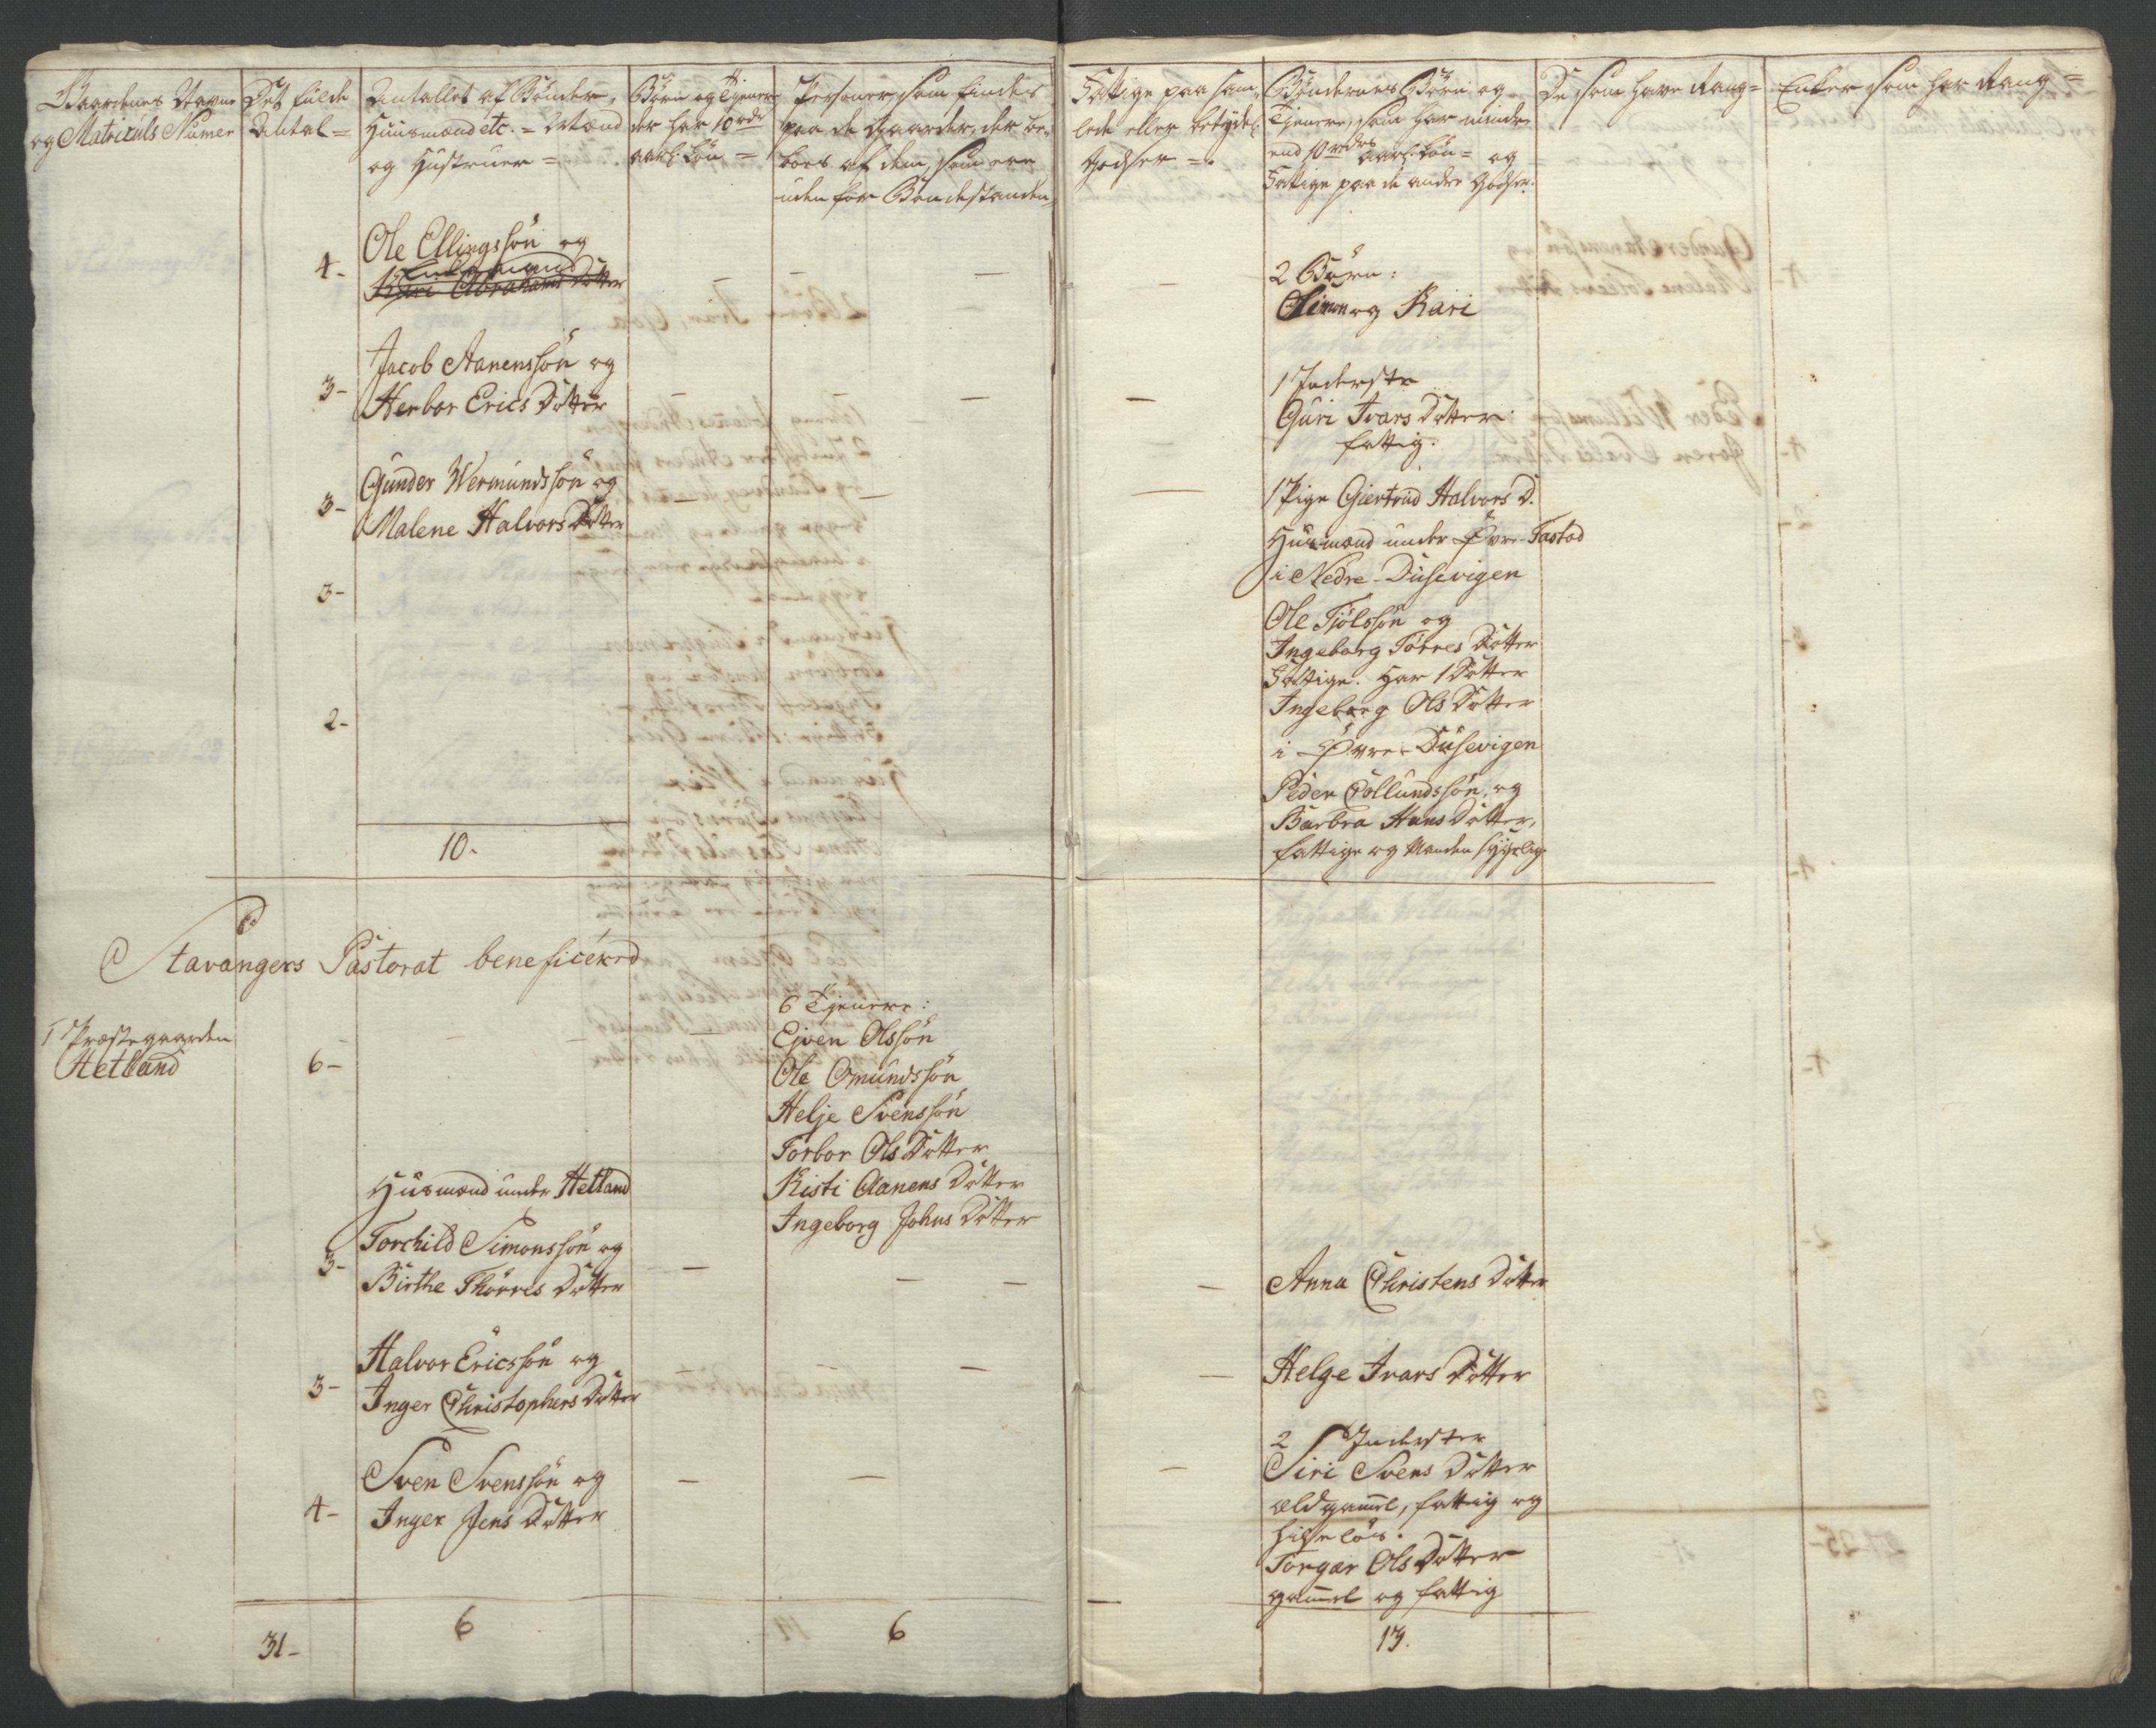 Gaardenes Navne
og Matriculs Numer
Det fulde
Antal =
Antallet af Bønder,
Huusmænd etc. = Mænd
og Hustruer =
Børn og Tjenere
der har 10 rdr
aarl: Løn =
Personer som findes
paa de Gaarder, der be-
boes af dem, som ere
uden for Bondestanden,
Fattige paa sam-
lede eller betydel:
Godser =
Bøndernes Børn og
Tjenere, som har mindre
end 10 rdrs aarl: Løn = og
Fattige paa de andre Godser.
De som have Rang =
Enker som har Rang =
4- Ole Ellingssøn og
Kari Abrahams Dotter
2 Børn:
Simon og Kari
3- Jacob Aanenssøn og
Herbor Erics Dotter
1 Inderste
Guri Ivars Dotter
fattig.
3- Gunder Wermundssøn og
Malene Halvors Dotter
1 Pige Giertrud Halvors D.
3-
Huusmænd under Øvre-Tastad
i Nedre-Dusevigen
Ole Tjölssøn og
Ingeborg Törres Dotter
Fattige. Har 1 Dotter
Ingeborg Ols Dotter
2-
i Øvre-Dusevigen
Peder Collundssøn, og
Barbra Hans Dotter,
fattige og Manden sygelig
10.
Stavangers Pastorat beneficered
1 Præstegaarden
Hetland
6-
6 Tjenere:
Ejven Olssøn
Ole Omundssøn
Helje Svenssøn
Torbor Ols Dotter
Kisti Aanens Dotter
Ingeborg Johns Dotter
Huusmænd under Hetland
3- Torchild Simonssøn og
Birthe Thörres Dotter
Anna Christens Dotter
3- Halvor Ericssøn og
Inger Christophers Dotter
Helge Ivars Dotter
4- Sven Svenssøn og
Inger Jens Dotter
2 Inderster
Siri Svens Dotter
ældgammel, fattig og
hielpeløs.
Torgar Ols Dotter
gammel og fattig
31- 6 6 13.